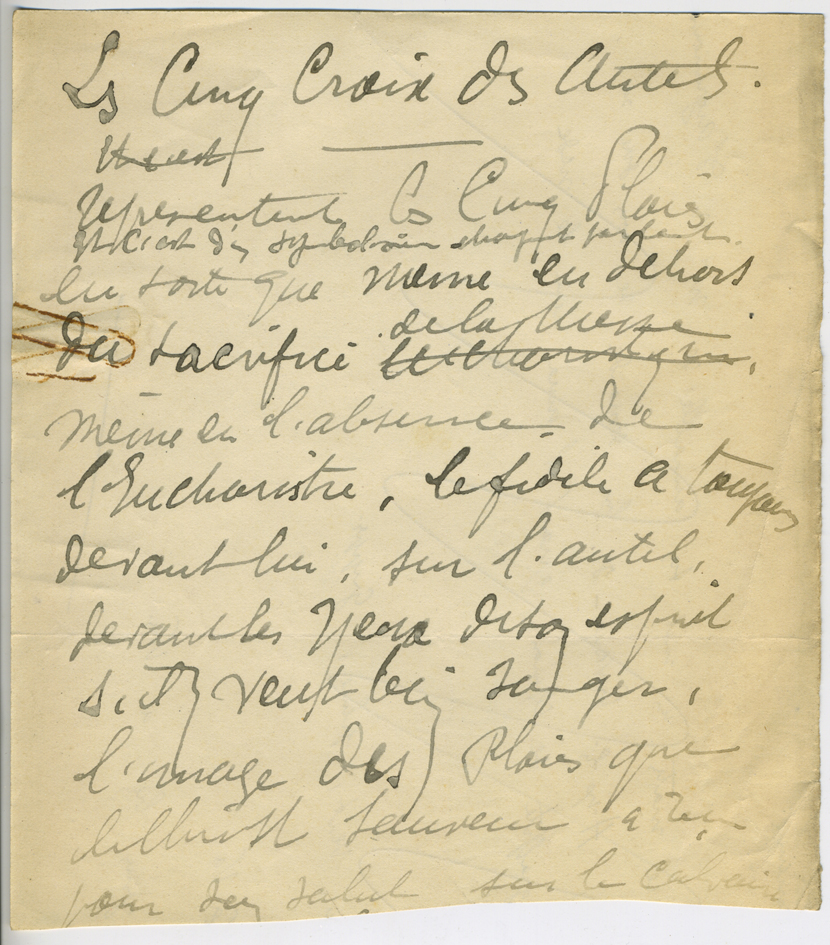 Les Cinq Croix des Autels.
représentent les Cinq Plaies
et c'est d'un symbolisme
en sorte que même en dehors
du sacrifice de la Messe
même en l'absence de
l'Eucharistie, le fidèle a toujours
devant lui, sur l'autel,
devant les yeux de son esprit
s'il y veut bien songer,
l'image des Plaies que
le Christ Sauveur a
pour son salut sur le Calvaire